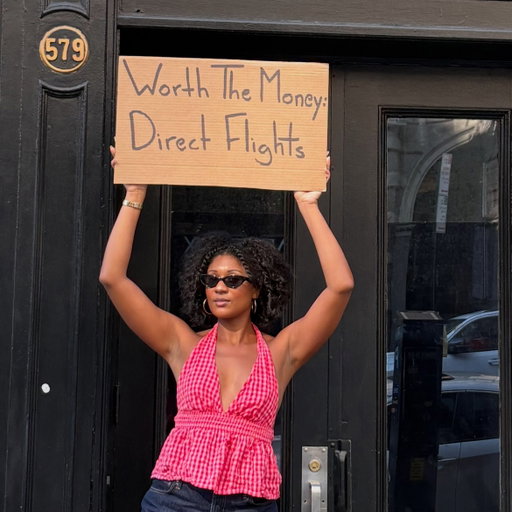 579
Worth The Money:
Direct Flights